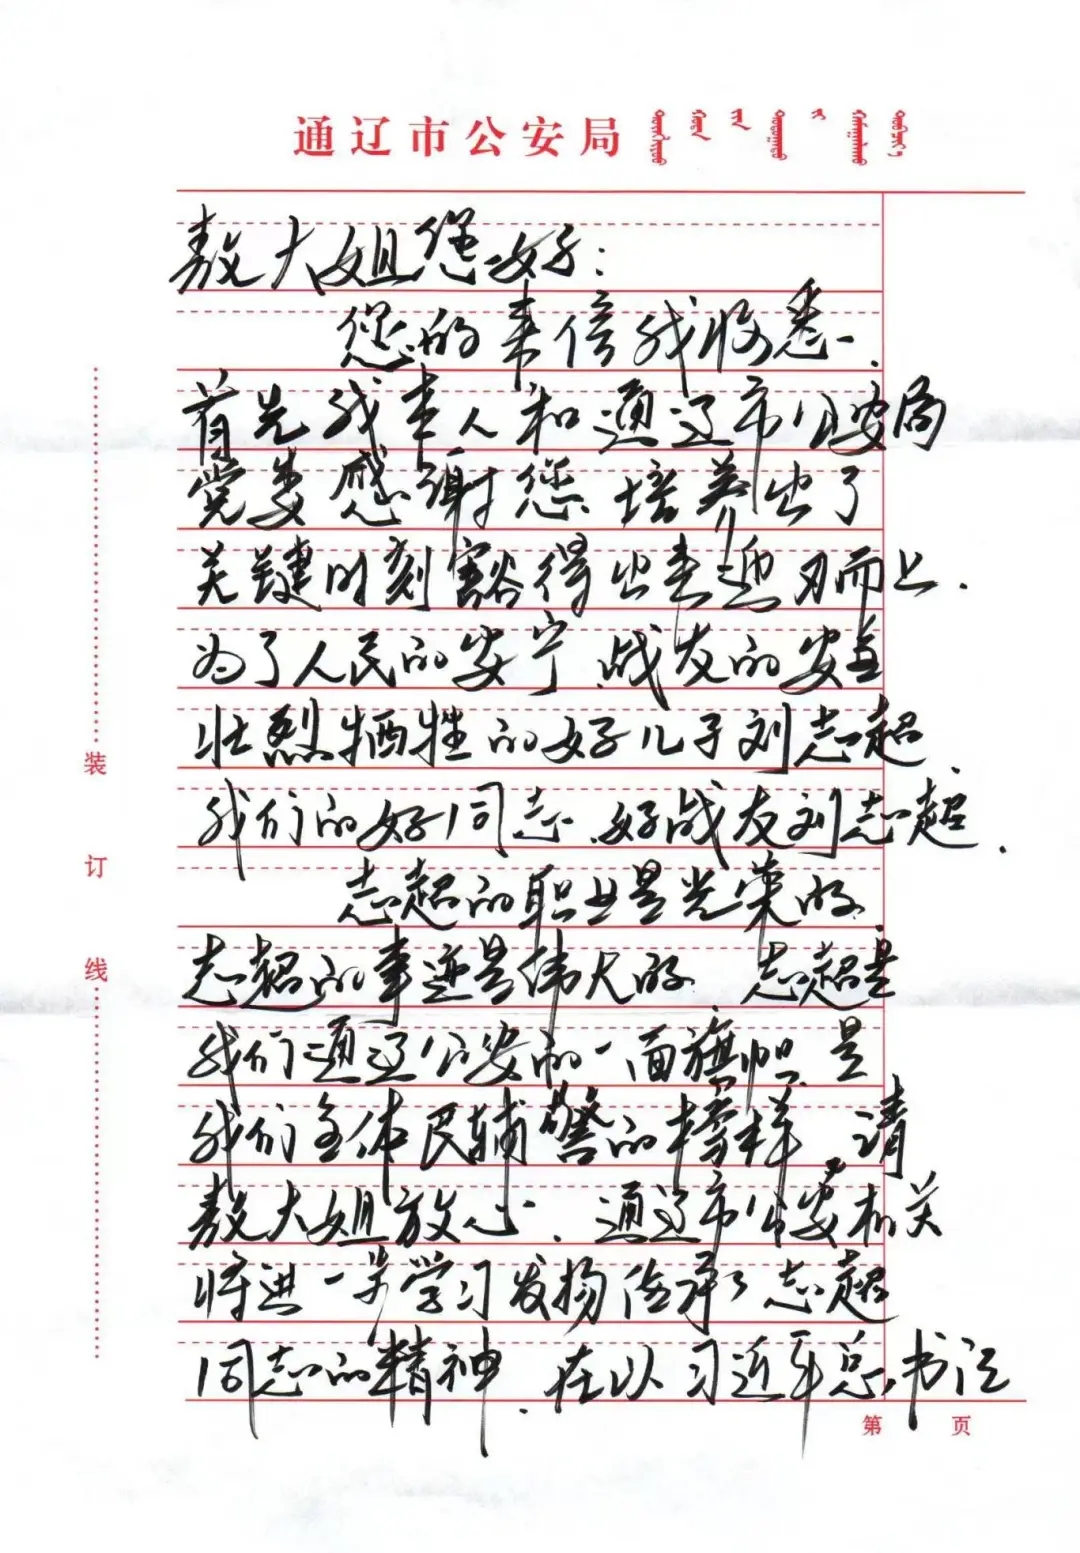 通辽市公安局
敖大姐您好：
您的来信我收悉.
首先我本人和通辽市公安局
党委感谢您培养出了
关键时刻豁得出来迎刃而上.
为了人民的安宁、战友的安
壮烈牺牲的好儿子刘志超、
我们的好同志、好战友刘志超.
志超的职业是光荣的、
志超的事迹是伟大的. 志超是
我们通辽公安的一面旗帜、是
我们全体民辅警的榜样. 请
敖大姐放心. 通辽市公安机关
将进一步学习发扬传承志超
同志的精神. 在以习近平总书记
装订线
第 页